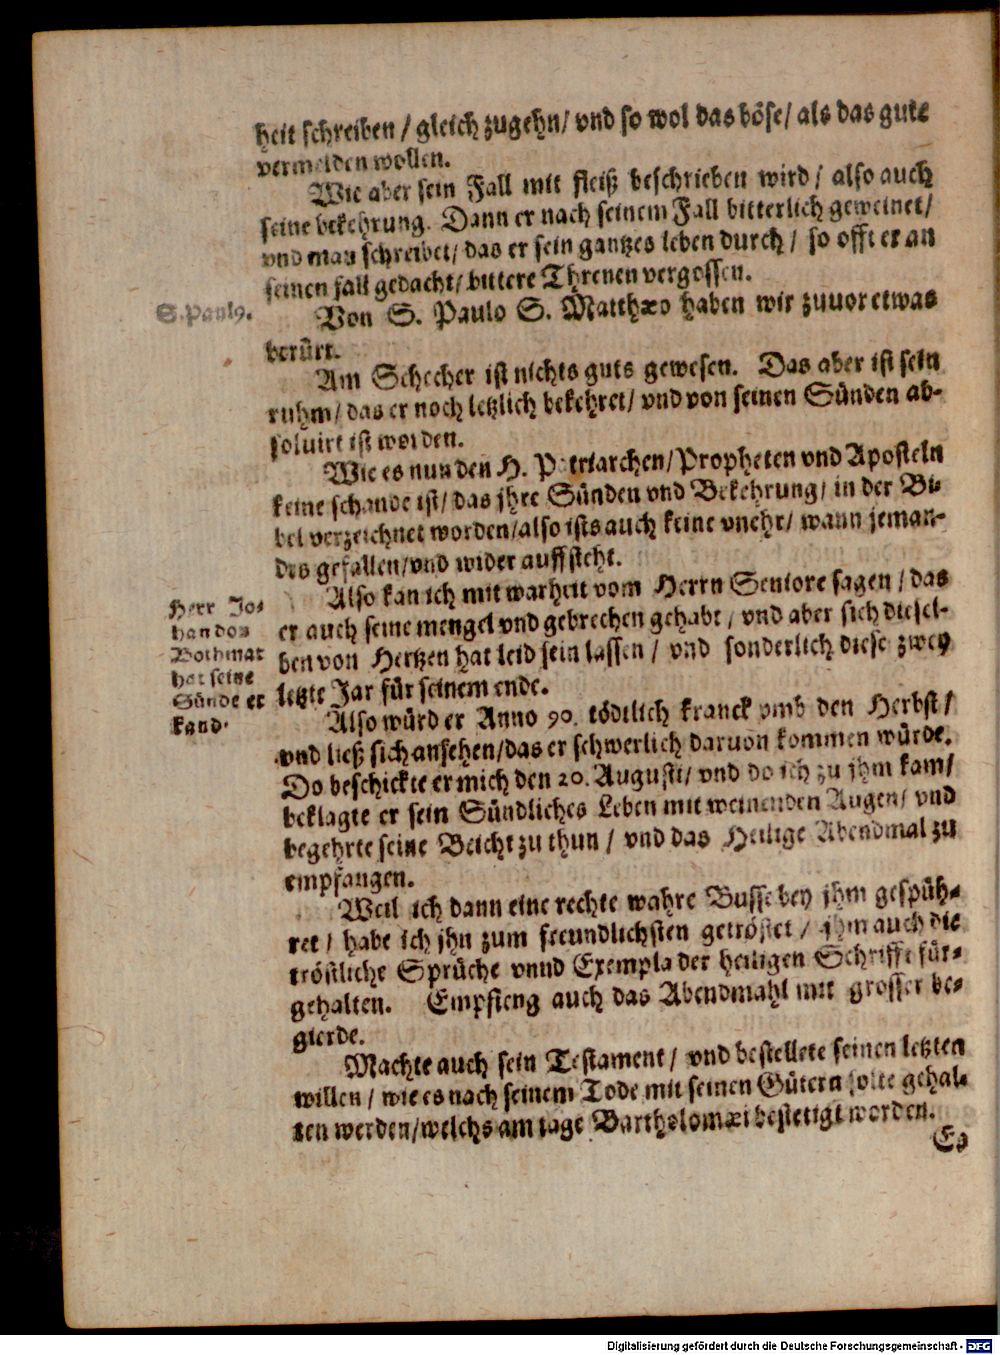 heit schreiben / gleich zugehn/ vnd so wol das böse/ als das gute
vermelden wollen.
Wie aber sein Fall mit fleiß beschrieben wird / also auch
seine bekehrung. Dann er nach seinem Fall bitterlich geweinet/
vnd man schreibet/ das er sein gantzes leben durch / so offt er an
seinen fall gedacht/ bittere Threnen vergossen.
S. Paulꝰ.
Von S. Paulo S. Matthæo haben wir zuuor etwas
berürt.
Am Schecher ist nichts guts gewesen. Das aber ist sein
ruhm/ das er noch letzlich bekehret/ vnd von seinen Sünden ab-
soluirt ist worden.
Wie es nun den H. Patriarchen/ Propheten vnd Aposteln
keine schande ist/ das jhre Sünden vnd Bekehrung/ in der Bi-
bel verzeichnet worden/ also ists auch keine vnehr/ wann jeman-
des gefallen/ vnd wider auffsteht.
Herr Jo-
han von
Bothmar
hat seine
Sünde er
kand.
Also kan ich mit warheit vom Herrn Seniore sagen / das
er auch seine mengel vnd gebrechen gehabt / vnd aber sich diesel-
ben von Hertzen hat leid sein lassen / vnd sonderlich diese zwey
letzte Jar für seinem ende.
Also würd er Anno 90. tödtlich kranck vmb den Herbst /
vnd ließ sich ansehen/ das er schwerlich daruon kommen würde.
Do beschickte er mich den 20. Augusti/ vnd do ich zu jhm kam/
beklagte er sein Sündliches Leben mit weinenden Augen/ vnd
begehrte seine Beicht zu thun / vnd das Heilige Abendmal zu
empfangen.
Weil ich dann eine rechte wahre Busse bey jhm gespüh-
ret / habe ich jhn zum freundlichsten getröstet / jhm auch die
tröstliche Sprüche vnnd Exempla der heiligen Schrifft für-
gehalten. Empfieng auch das Abendmahl mit grosser be-
gierde.
Machte auch sein Testament / vnd bestellete seinen letzten
willen / wie es nach seinem Tode mit seinen Gütern solte gehal-
ten werden/ welchs am tage Bartholomæi bestetigt worden.
Es
Digitalisierung gefördert durch die Deutsche Forschungsgemeinschaft - DFG